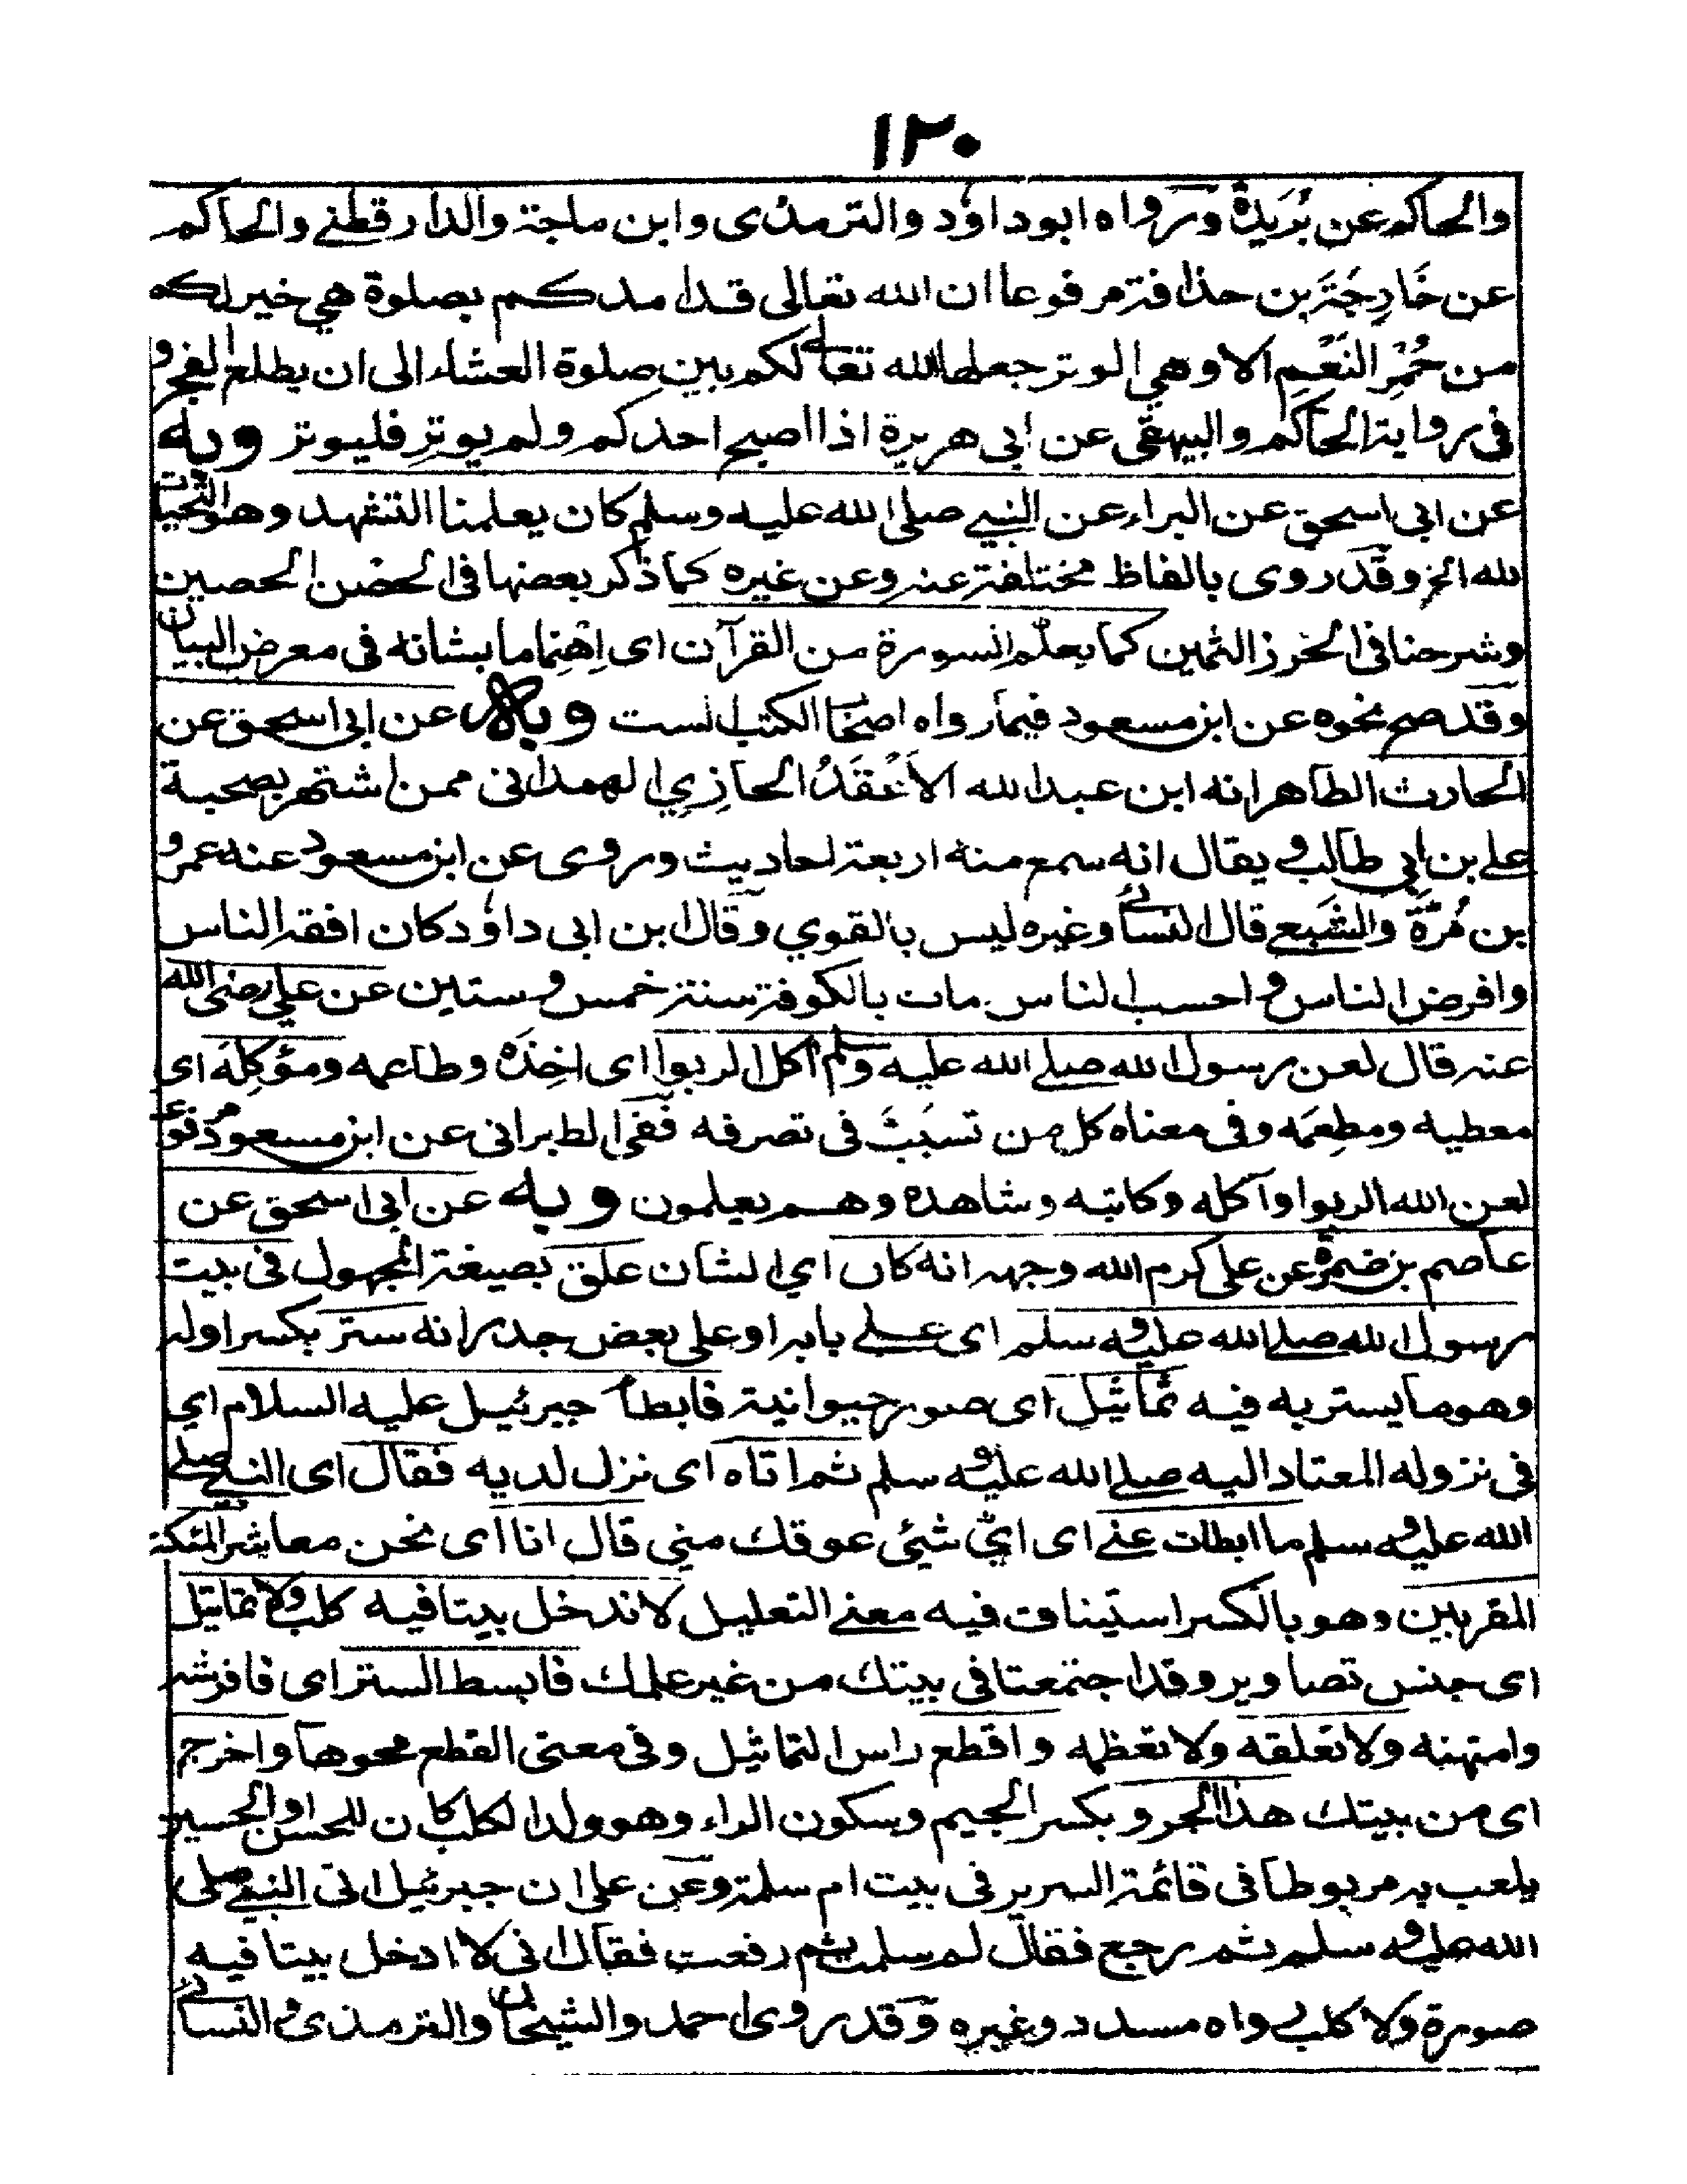 ١٢٠
والحاكم عن بُرَيدَة ورواه ابوداؤد والترمذى وابن ماجة والدارقطنے والحاكم
عن خَارِجَةَ بن حذافة مرفوعا ان الله تعالى قد امدكم بصلوة هي خير لكم
من حُمْرِ النَعَمِ الا وهي الوتر جعلها الله تعالے لكم بين صلوة العشاء الى ان يطلع الفجر و
فى رواية الحاكم والبيهقى عن ابى هريرة اذا اصبح احدكم ولم يوتر فليوتر وبه
عن ابى اسحق عن البراء عن النبے صلى الله عليه وسلم كان يعلمنا التشهد وهو التحيات
لله الخ وقد روى بالفاظ مختلفة عنه وعن غيره كما ذكر بعضها فى الحصن الحصين
وشرحنا فى الحرز الثمين كما يعلم السورة من القرآن اى اهتماما بشانه فى معرض البيان
وقد صح نحوه عن ابن مسعود فيما رواه اصحا الكتب الست وبه عن ابى اسحق عن
الحارث الظاهر انه ابن عبدالله الاَعْقَدُ الحازِي الهمدانى ممن اشتهر بصحبة
علے بن ابى طالب ويقال انه سمع منه اربعة احاديث وروى عن ابن مسعود عنه عمرو
بن مُرَّة والشعبے قال النسائے وغيره ليس بالقوي وقال ابن ابى داؤد كان افقه الناس
وافرض الناس واحسب الناس مات بالكوفة سنة خمس وستين عن علي رضى الله
عنه قال لعن رسول الله صلے الله عليه وسلم آكل الربوا اى اخذه وطاعمه ومؤكِلَه اى
معطيه ومطعمه وفى معناه كل من تسبّب فى تصرفه ففى الطبرانى عن ابن مسعود مرفوعا
لعن الله الربوا وآكله وكاتبه وشاهده وهم يعلمون وبه عن ابى اسحق عن
عاصم بن ضمرة عن على كرم الله وجهه انه كان اي الشان علق بصيغة المجهول فى بيت
رسول الله صلے الله عليه وسلم اى علے بابه او على بعض جدرانه ستر بكسر اوله
وهو ما يستر به فيه تماثيل اى صور حيوانية فابطأ جبرئيل عليه السلام اي
فى نزوله المعتاد اليه صلے الله عليه وسلم ثم اتاه اى نزل لديه فقال اى النبے صلے
الله عليه وسلم ما ابطات عنے اى ايّ شيئى عوقك مني قال انا اى نحن معاشر الملئكة
المقربين وهو بالكسر استيناف فيه معنے التعليل لا ندخل بيتا فيه كلب ولا تماثيل
اى جنس تصاوير وقد اجتمعتا فى بيتك من غير علمك فابسط الستر اى فافرشه
وامتهنه ولا تعلقه ولا تعظمه واقطع راس التماثيل وفى معنى القطع محوها واخرج
اى من بيتك هذا الجرو بكسر الجيم وسكون الراء وهو ولد الكلب كان للحسن او الحسين
يلعب به مربوطا فى قائمة السرير فى بيت ام سلمة وعن على ان جبرئيل اتى النبے صلى
الله عليه وسلم ثم رجع فقال لم سلمت ثم رفعت فقال انى لا ادخل بيتا فيه
صورة ولا كلب رواه مسدد وغيره وقد روى احمد والشيخان والترمذى والنسائے